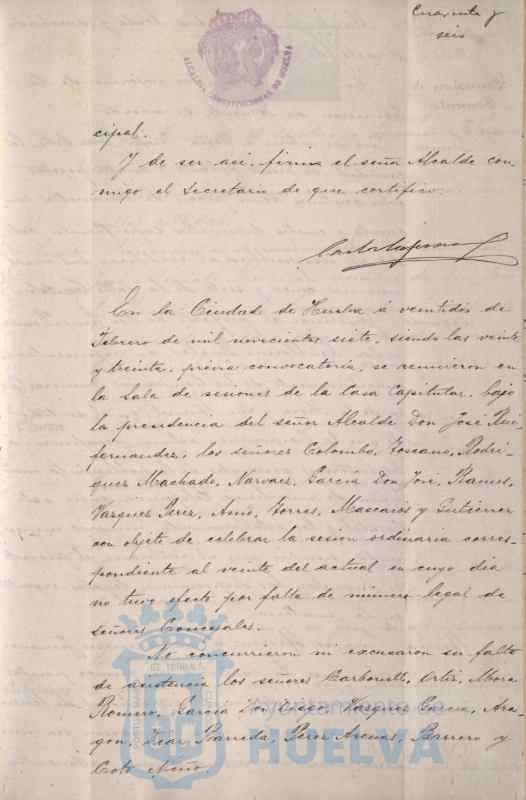 Cuarenta y
seis
ALCALDIA CONSTITUCIONAL DE HUELVA
cipal.
Y de ser asi, firma el señor Alcalde con-
migo el Secretario de que certifico.
En la Ciudad de Huelva á veintidos de
Febrero de mil novecientos siete, siendo las veinte
y treinta, prévia convocatoria, se reunieron en
la Sala de sesiones de la Casa Capitular, bajo
la presidencia del señor Alcalde Don José
fernandez, los señores Colombo, Toscano, Rodri-
guez Machado, Narvaez, García Don José, Ramos,
Vazquez Perez, Amo, Torres, Mascarós y Gutierrez
con objeto de celebrar la sesion ordinaria corres-
pondiente al veinte del actual en cuyo dia
no tuvo efecto por falta de número legal de
señores Concejales.
No concurrieron ni excusaron su falta
de asistencia los señores Carbonell, Ortiz, Mora
Romero, García Don Diego, Vazquez Ara-
gon, Diaz Barreda, Perez Arenas, Barrero y
Coto Niño.
Ayuntamiento de
HUELVA